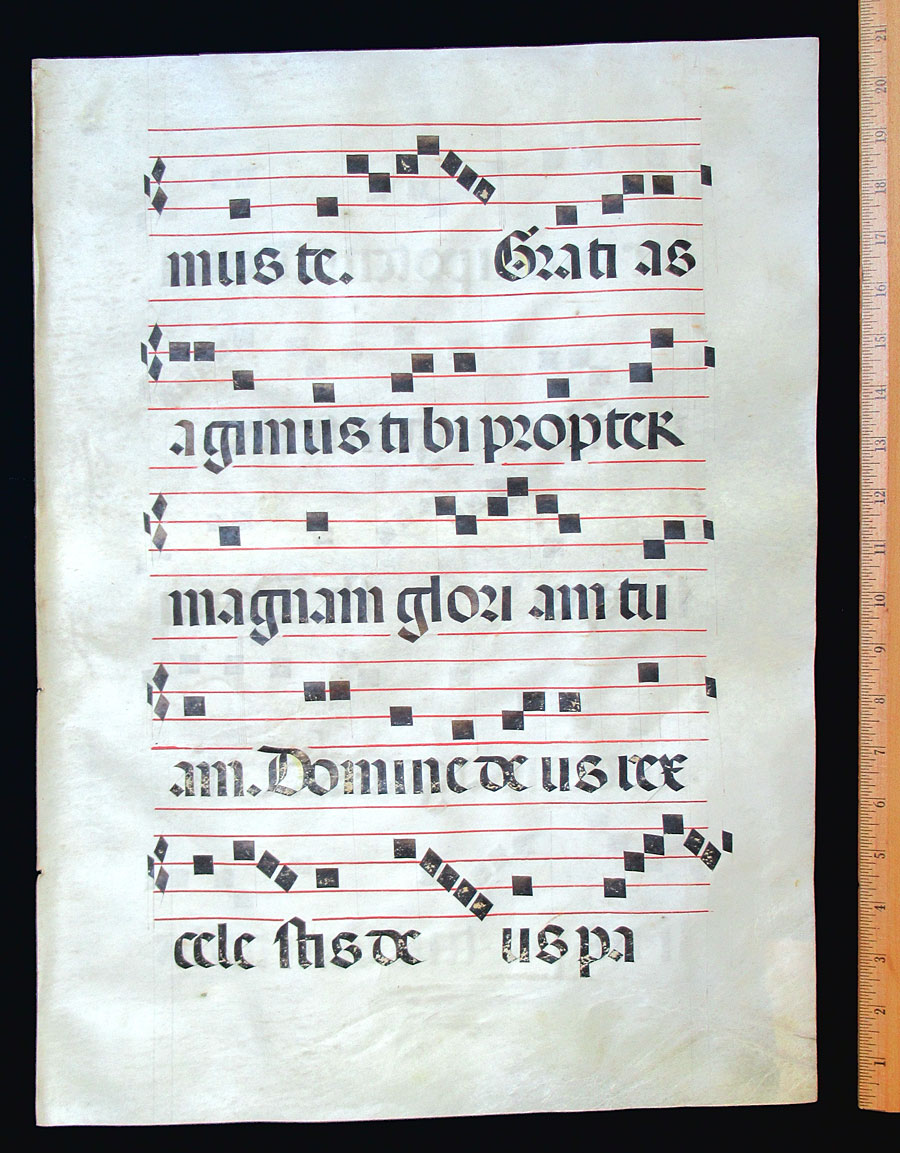 mus te. Grati as
agimus tibi propter
magnam glori am tu
am. Domine de us rex
cele stis de us pa
21
20
19
18
17
16
15
14
13
12
11
10
9
8
7
6
5
4
3
2
1